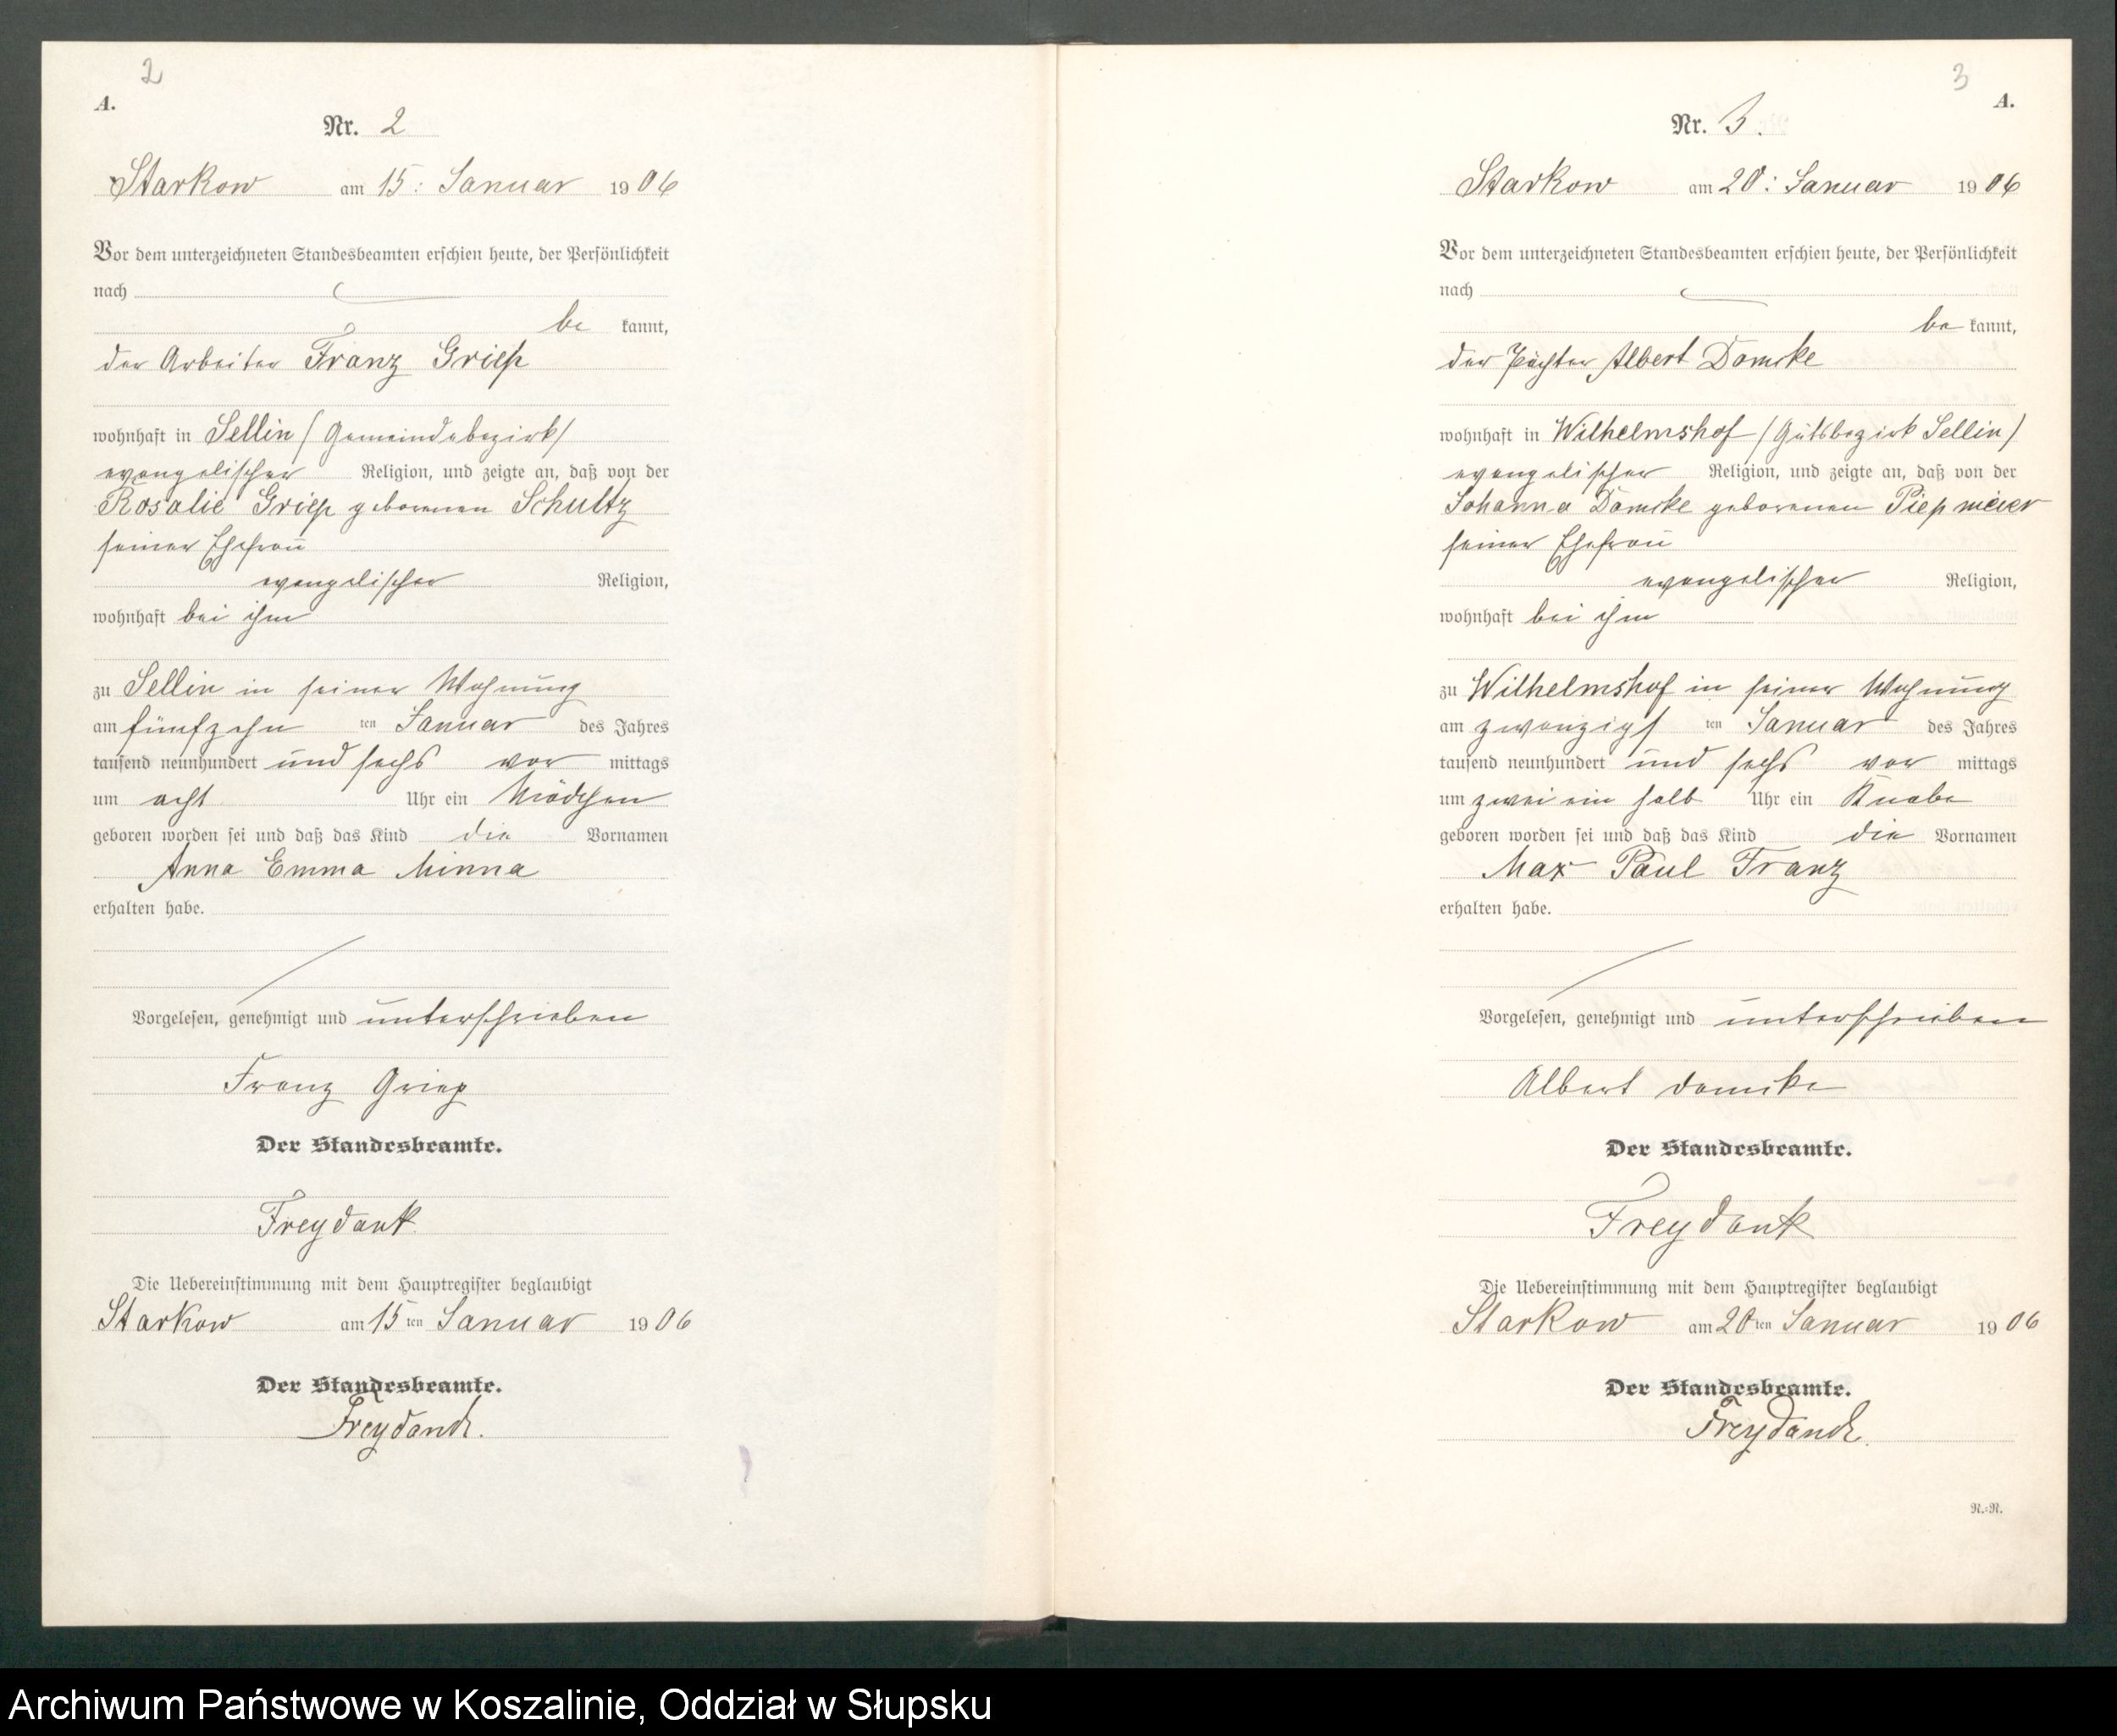 2
A.
Nr. 2
Starkow am 15: Januar 1906
Vor dem unterzeichneten Standesbeamten erschien heute, der Persönlichkeit
nach
be kannt,
der Arbeiter Franz Griep
wohnhaft in Sellin /Gemeindebezirk/
evangelischer Religion, und zeigte an, daß von der
Rosalie Griep geborenen Schultz
seiner Ehefrau
evangelischer Religion,
wohnhaft bei ihm
zu Sellin in seiner Wohnung
am fünfzehn ten Januar des Jahres
tausend neunhundert und sechs vor mittags
um acht Uhr ein Mädchen
geboren worden sei und daß das Kind die Vornamen
Anna Emma Minna
erhalten habe.
Vorgelesen, genehmigt und unterschrieben
Franz Griep
Der Standesbeamte.
Freydank
Die Uebereinstimmung mit dem Hauptregister beglaubigt
Starkow am 15 ten Januar 1906
Der Standesbeamte.
Freydank.
3
A.
Nr. 3.
Starkow am 20: Januar 1906
Vor dem unterzeichneten Standesbeamten erschien heute, der Persönlichkeit
nach
be kannt,
der Pächter Albert Domcke
wohnhaft in Wilhelmshof /Gutsbezirk Sellin/
evangelischer Religion, und zeigte an, daß von der
Johanna Domcke geborenen Piepmeier
seiner Ehefrau
evangelischer Religion,
wohnhaft bei ihm
zu Wilhelmshof in seiner Wohnung
am zwanzigs ten Januar des Jahres
tausend neunhundert und sechs vor mittags
um zwei ein halb Uhr ein Knabe
geboren worden sei und daß das Kind die Vornamen
Max Paul Franz
erhalten habe.
Vorgelesen, genehmigt und unterschrieben
Albert Domcke
Der Standesbeamte.
Freydank
Die Uebereinstimmung mit dem Hauptregister beglaubigt
Starkow am 20 ten Januar 1906
Der Standesbeamte.
Freydank.
R.=R.
Archiwum Państwowe w Koszalinie, Oddział w Słupsku